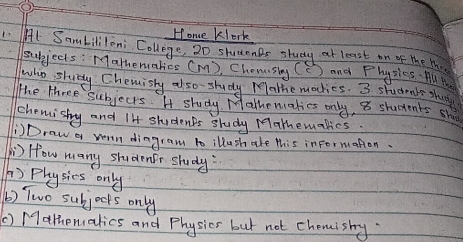 Home Work
1. At Sambilileni College, 20 students study at least on of the three
subjects: Mathematics (M), Chemistry (C) and Physics. All the
who study Chemistry also study Mathematics. 3 students study
the three subjects. 4 study Mathematics only, 8 students study
chemistry and 14 students study Mathematics.
i) Draw a venn diagram to illustrate this information.
ii) How many students study:
a) Physics only
b) Two subjects only
c) Mathematics and Physics but not Chemistry.